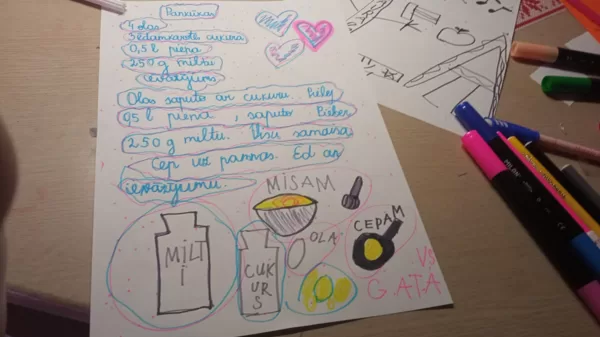 Pankūkas
4 olas
3 ēdamkarotes cukura
0,5 l piena
250 g miltu
ievārījums
Olas saputo ar cukuru. Pielej
0,5 l piena, saputo. Pieber
250 g miltu. Visu samaisa.
Cep uz pannas. Ēd ar
ievārījumu.
MISAM
OLA
CEPAM
MILTI
CUKURS
VS
GATA